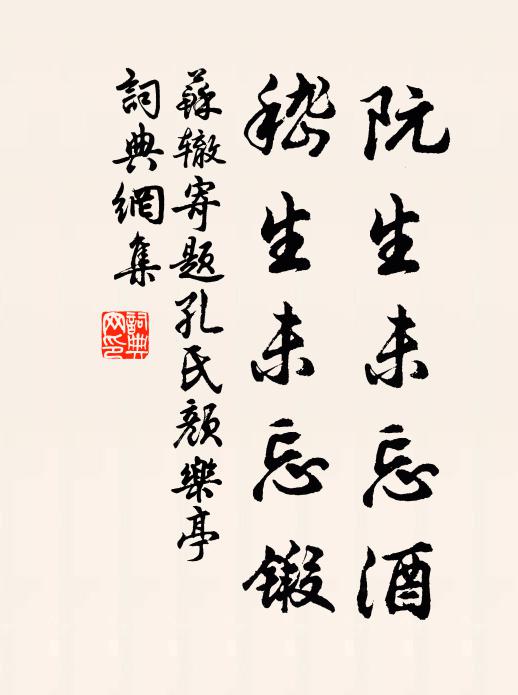 阮生未忘酒
嵇生未忘鍛
蘇辙寄题孔氏顏樂亭
詞典網集
詞典網印